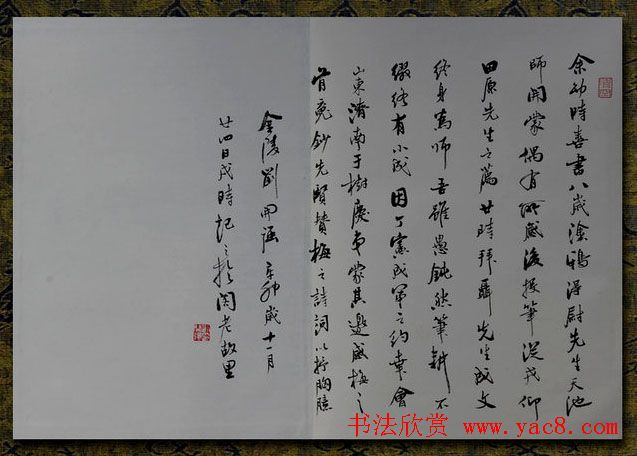 余幼時喜書八歲塗鴉得尉先生天池
師開蒙偶有所感後投筆從戎仰
田原先生之薦廿時拜聶先生成文
終身為師吾雖愚鈍然筆耕不
綴終有小成因丁憲成軍之約幸會
山東濟南于樹慶弟蒙其邀盛梅之
鈔先賢贊梅之詩詞以抒胸臆
金陵劉開強辛卯歲十一月
廿四日戌時記之於閱老故里
书法欣赏 www.yac8.com